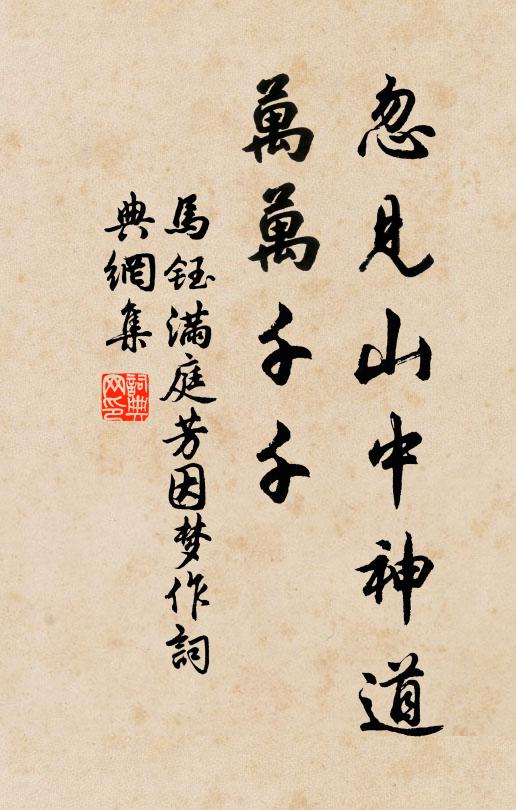 忽見山中神道
萬萬千千
馬鈺滿庭芳因梦作詞
典網集
詞典网印